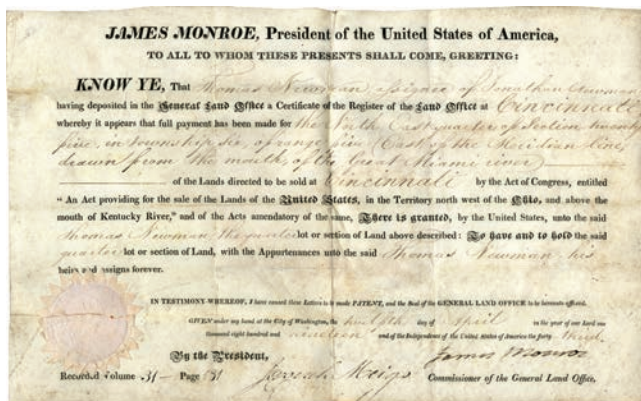 JAMES MONROE, President of the United States of America,
TO ALL TO WHOM THESE PRESENTS SHALL COME, GREETING:
KNOW YE, That Thomas Newman assignee of Jonathan Newman
having deposited in the General Land Office a Certificate of the Register of the Land Office at Cincinnati
whereby it appears that full payment has been made for the North East quarter of Section twenty
five, in township six, of range five (East of the Meridian line,
drawn from the mouth, of the Great Miami river)
of the Lands directed to be sold at Cincinnati by the Act of Congress, entitled
"An Act providing for the sale of the Lands of the United States, in the Territory north west of the Ohio, and above the
mouth of Kentucky River," and of the Acts amendatory of the same, There is granted, by the United States, unto the said
Thomas Newman the quarter lot or section of Land above described: To have and to hold the said
quarter lot or section of Land, with the Appurtenances unto the said Thomas Newman, his
heirs and assigns forever.
IN TESTIMONY WHEREOF, I have caused these Letters to be made PATENT, and the Seal of the GENERAL LAND OFFICE to be hereunto affixed.
GIVEN under my hand at the City of Washington, the twelfth day of April in the year of our Lord one
thousand eight hundred and nineteen and of the Independence of the United States of America the forty third.
By the President, James Monroe
Recorded Volume 31 Page Josiah Meigs Commissioner of the General Land Office.